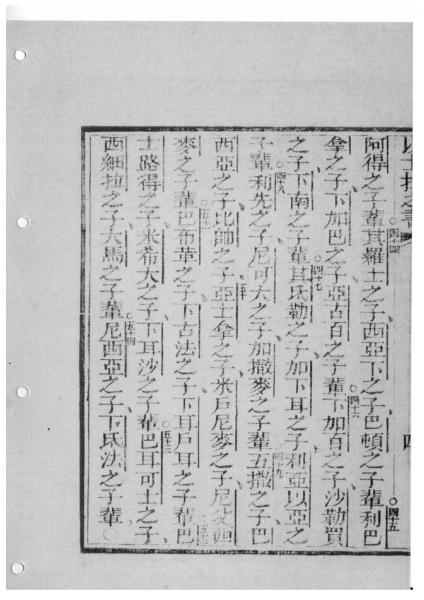 以士拉之書
四
阿得之子輩其羅士之子西亞下之子巴頓之子輩利巴
拿之子下加巴之子亞古百之子輩下加百之子沙勒買
之子下南之子輩其氐勒之子加下耳之子利亞以亞之
子輩利先之子尼可大之子加撒麥之子輩五撒之子巴
西亞之子比帥之子亞士拿之子米戶尼麥之子尼西
麥之子輩巴布革之子下古法之子下耳戶耳之子輩巴
士路得之子米希大之子下耳沙之子輩巴耳可士之子
西細拉之子大馬之子輩尼西亞之子下氐法之子輩
四十四
四十五
四十六
四十七
四十八
四十九
五十
五十一
五十二
五十三
五十四